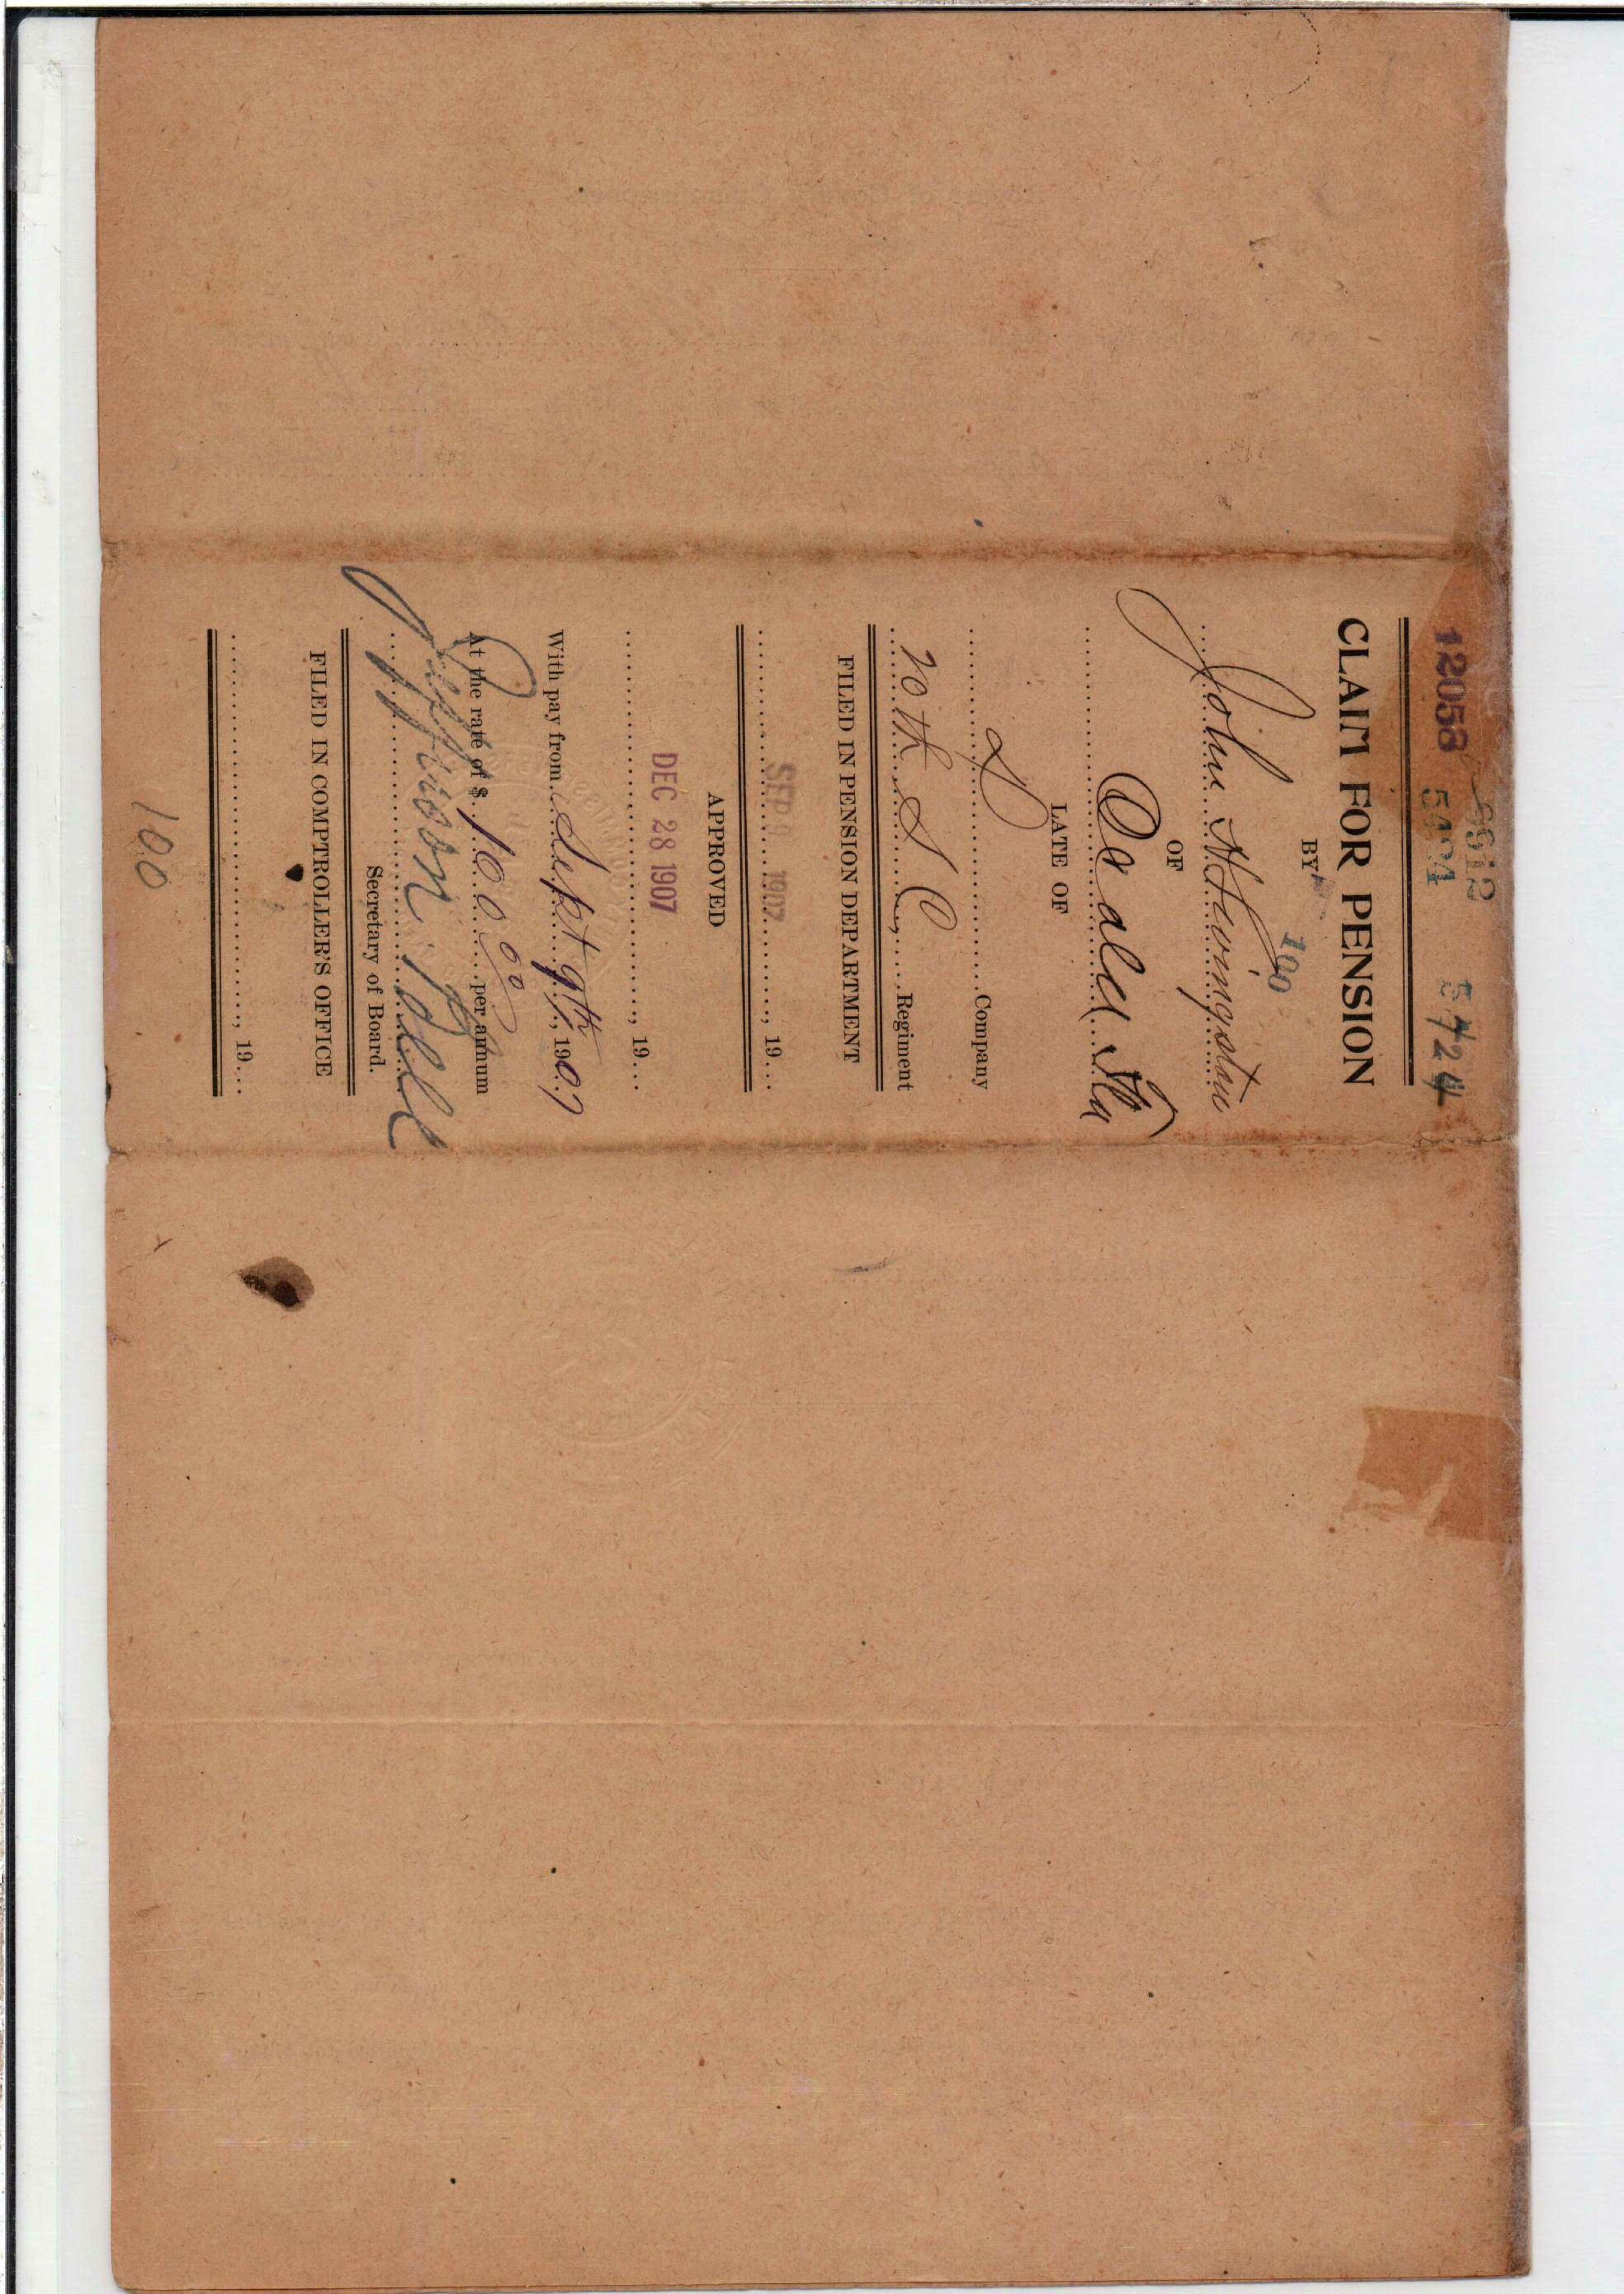 5724
CLAIM FOR PENSION
BY
100
John Livingston
OF
Fla
LATE OF
Company
20th S C, Regiment
FILED IN PENSION DEPARTMENT
SEP 9 1907, 19
APPROVED
DEC 28 1907
, 19
With pay from Sept 9th, 1907
At the rate of $ 100 00 per annum
Jefferson Bell
Secretary of Board.
FILED IN COMPTROLLER'S OFFICE
, 19
100